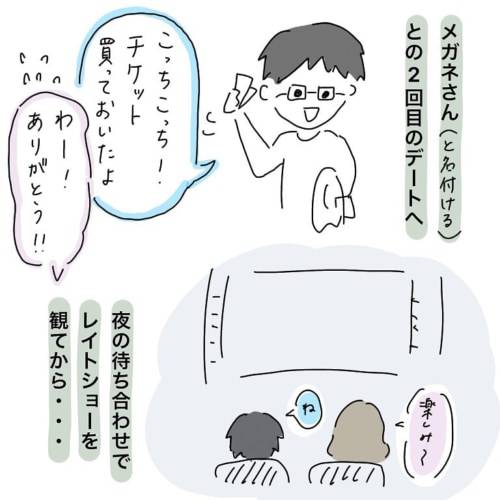 メガネさん(と名付ける)
との2回目のデートへ
こっちこっち!
チケット
買っておいたよ
わー!
ありがとう!!
楽しみ〜
ね
夜の待ち合わせで
レイトショーを
観てから・・・